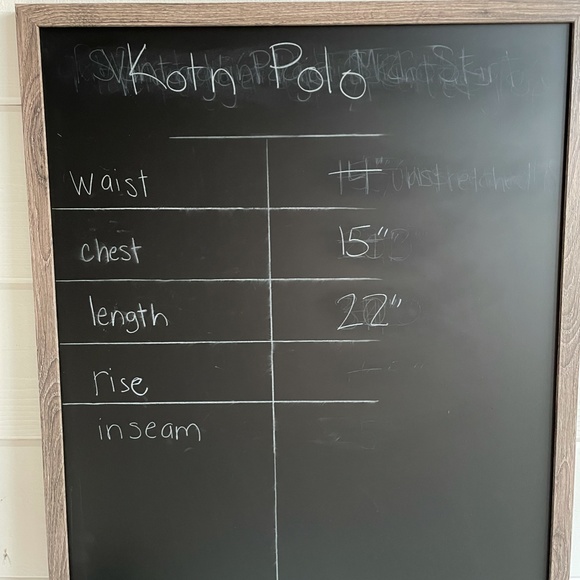 Kotn Polo
waist
chest 15"
length 22"
rise
inseam